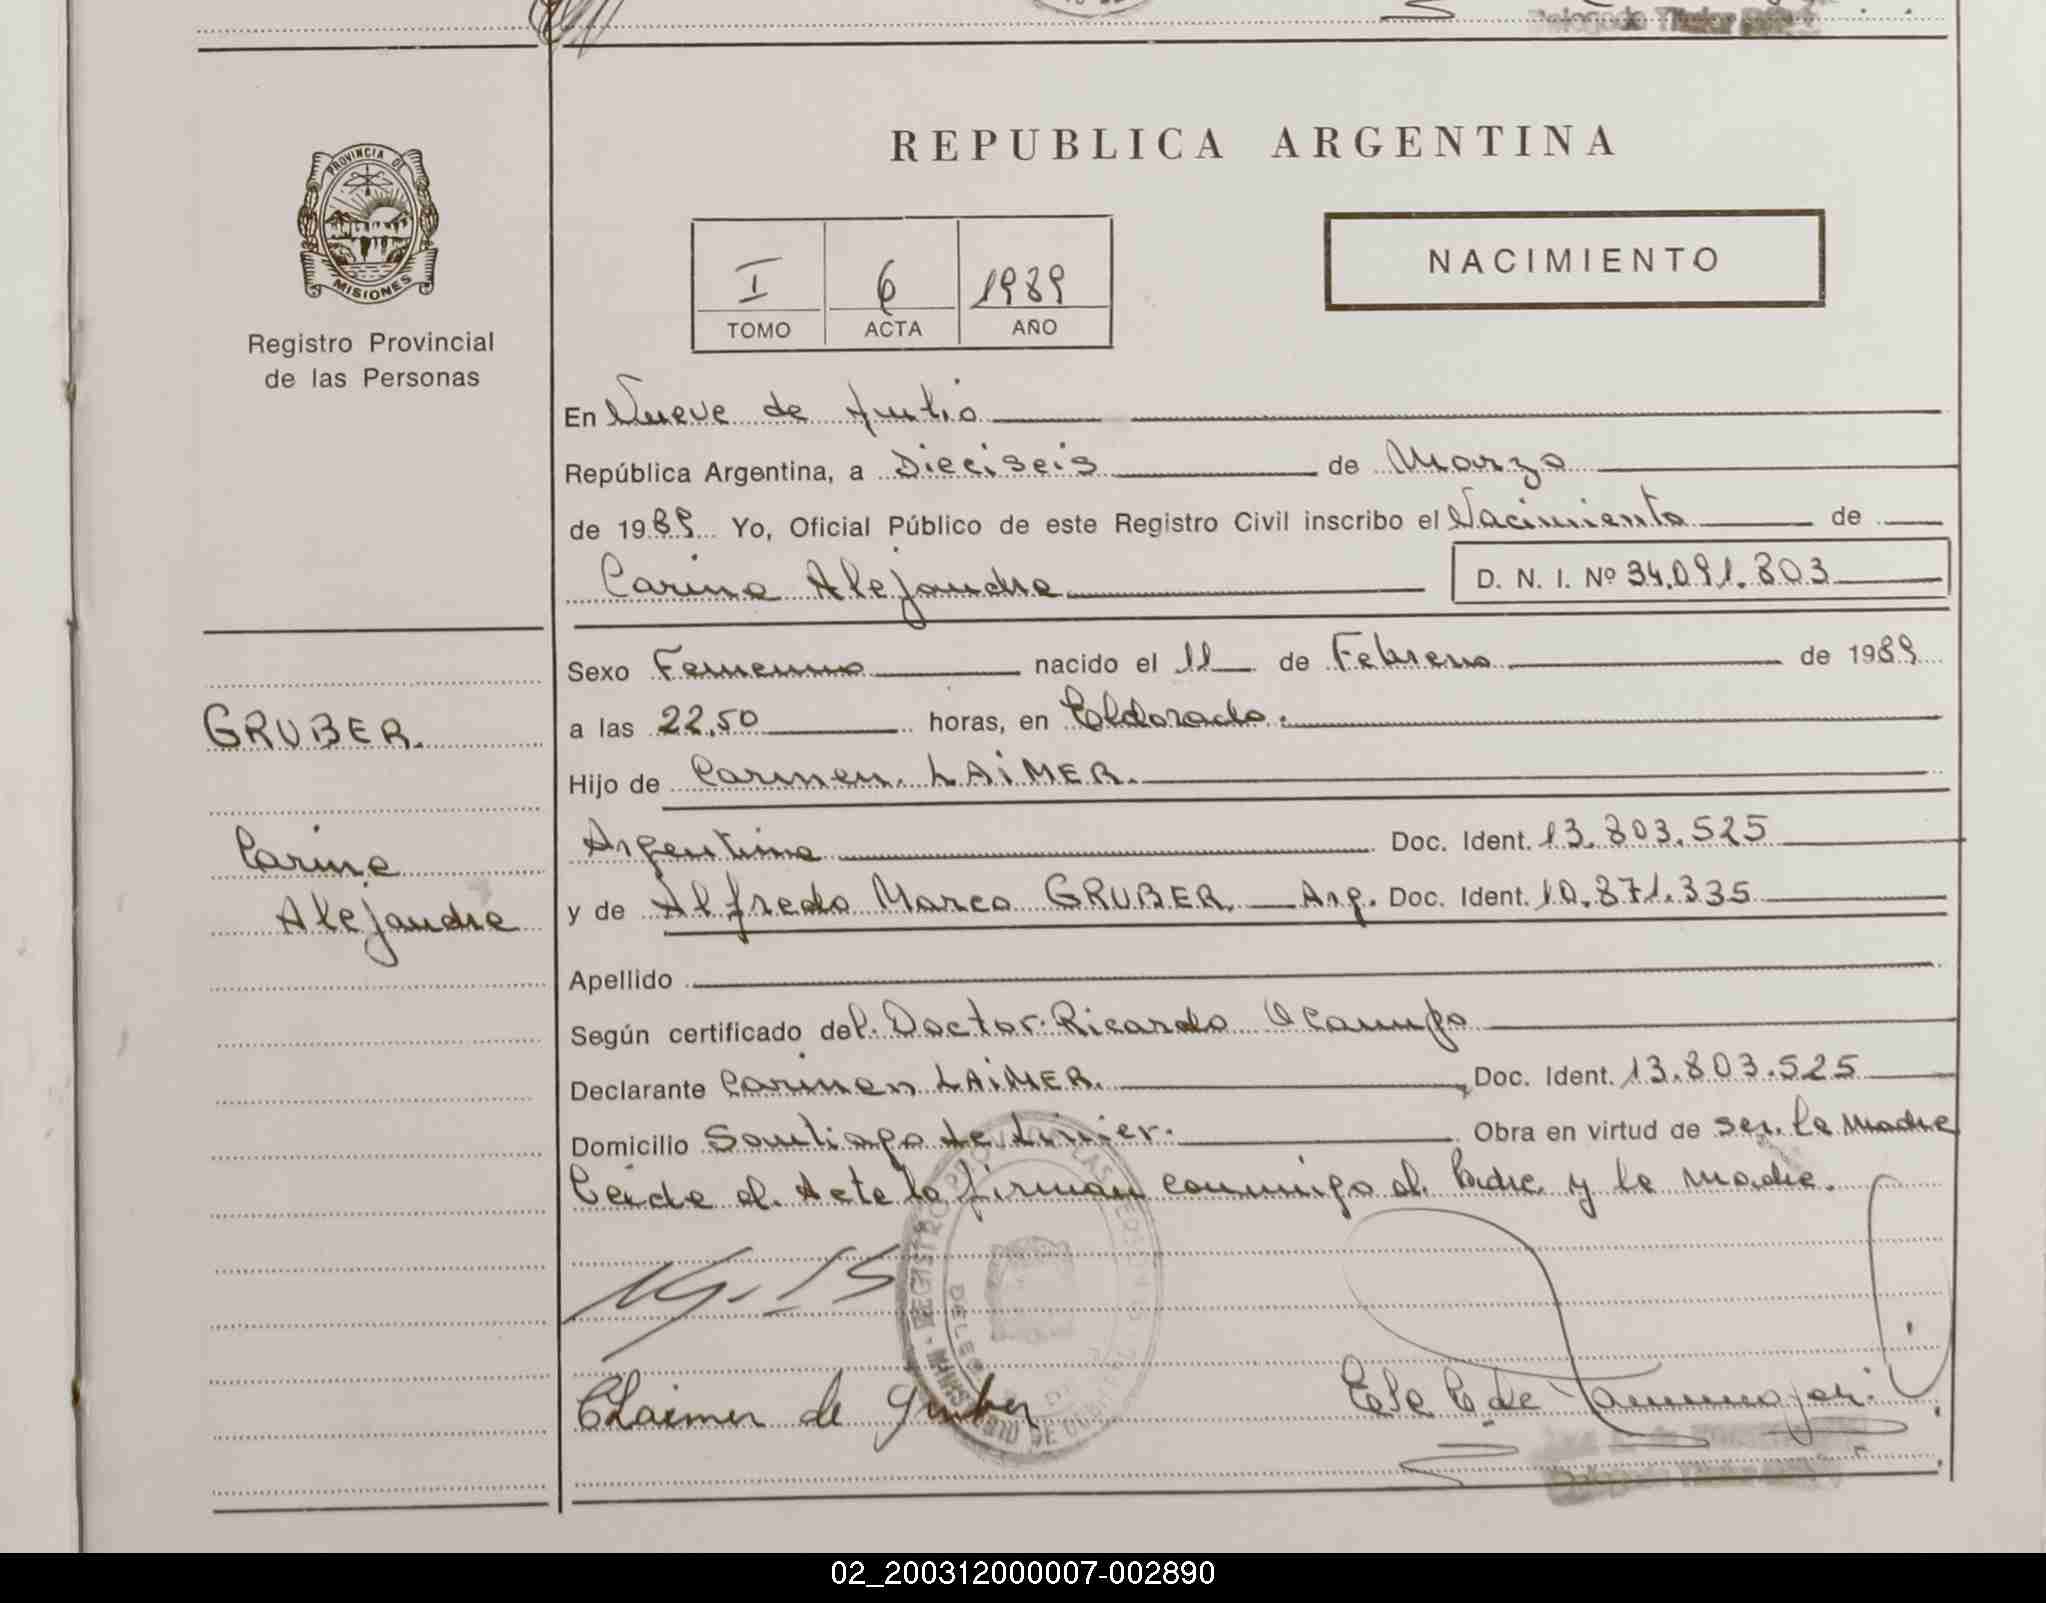 REPUBLICA ARGENTINA
PROVINCIA DE
MISIONES
Registro Provincial
de las Personas
I 6 1989
TOMO ACTA AÑO
NACIMIENTO
En Nueve de Julio
República Argentina, a Dieciseis de Marzo
de 1989 Yo, Oficial Público de este Registro Civil inscribo el Nacimiento de
Carina Alejandra D. N. I. Nº 34.091.803
Sexo Femenino nacido el 11 de Febrero de 1989
a las 22,50 horas, en Eldorado.
Hijo de Carmen LAIMER.
Argentina Doc. Ident. 13.803.525
y de Alfredo Marco GRUBER. Arg. Doc. Ident. 10.871.335
Apellido
Según certificado del Doctor Ricardo Ocampo
Declarante Carmen LAIMER. Doc. Ident. 13.803.525
Domicilio Santiago de Linier. Obra en virtud de ser la madre
Leida el Acta la firman conmigo el Padre y la madre.
GRUBER.
Carina
Alejandra
CLaimer de Gruber
Delegado Titular
02_200312000007-002890